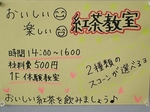 おいしい
楽しい
紅茶教室
時間 14:00~1600
材料費 500円
1F 体験教室
2種類の
スコーンが選べるヨ
おいしい紅茶を飲みましょう♪